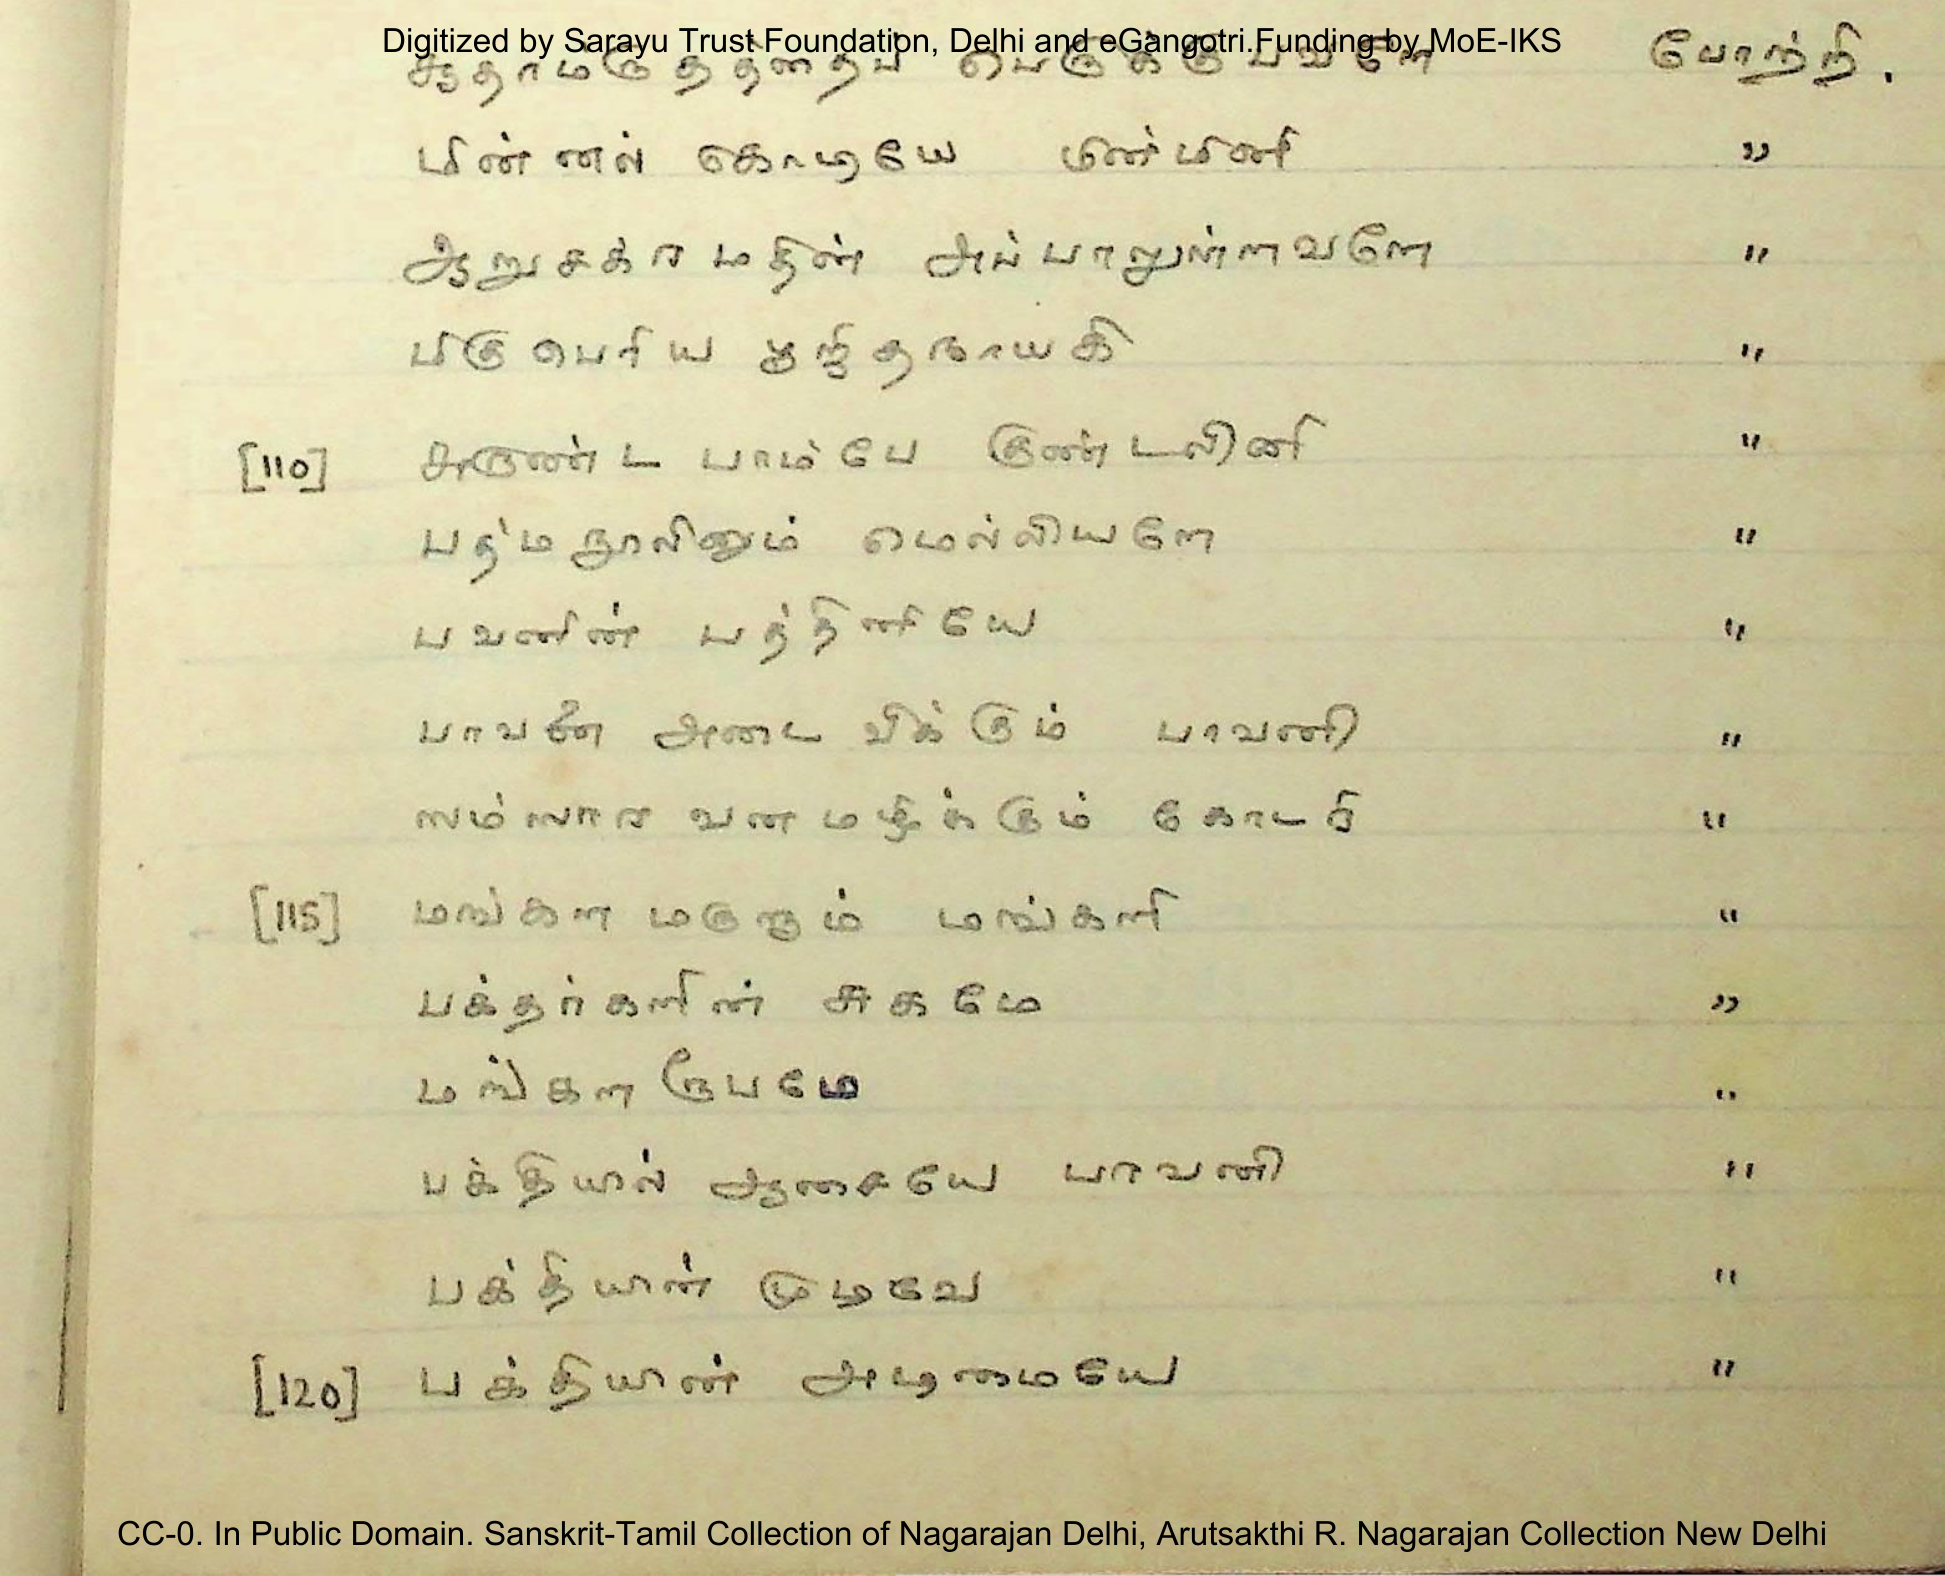 Digitized by Sarayu Trust Foundation, Delhi and eGangotri.Funding by MoE-IKS
பெருக்குபவளே போற்றி.
மின்னல் கொடியே மின்மினி "
ஆறுசக்ரமதின் அப்பாலுள்ளவளே "
மிகுபெரிய "
[110] சுருண்ட பாம்பே குண்டலினி "
பத்மநூலினும் மெல்லியளே "
பவனின் பத்தினியே "
பாவன் அடைவிக்கும் பாவனி "
ஸம்ஸார வனமழிக்கும் கோடரி "
[115] மங்களமருளும் மங்களி "
பக்தர்களின் சுகமே "
மங்களரூபமே "
பக்தியில் ஆசையே பாவனி "
பக்தியின் முடிவே "
[120] பக்தியின் அடிமையே "
CC-0. In Public Domain. Sanskrit-Tamil Collection of Nagarajan Delhi, Arutsakthi R. Nagarajan Collection New Delhi